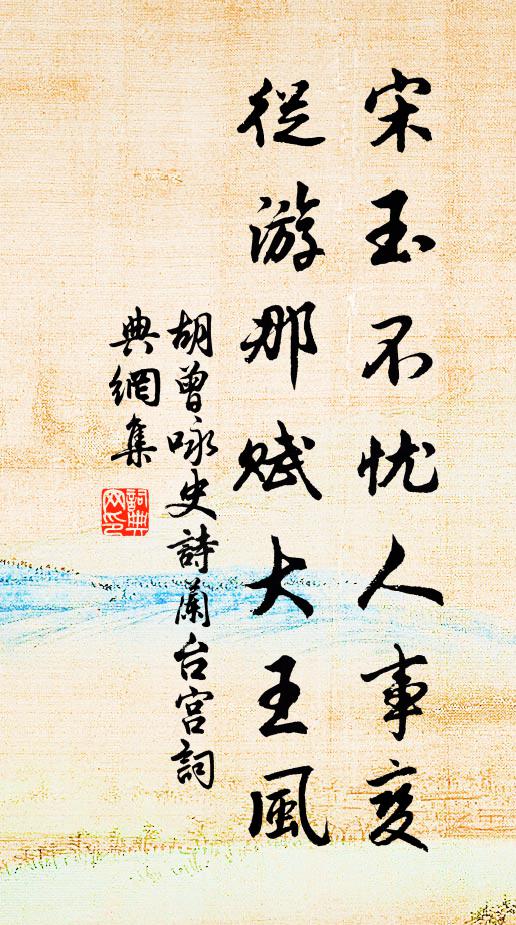 宋玉不忧人事变
從游那赋大王風
胡曾咏史詩蘭台宫詞
典網集
詞典網印